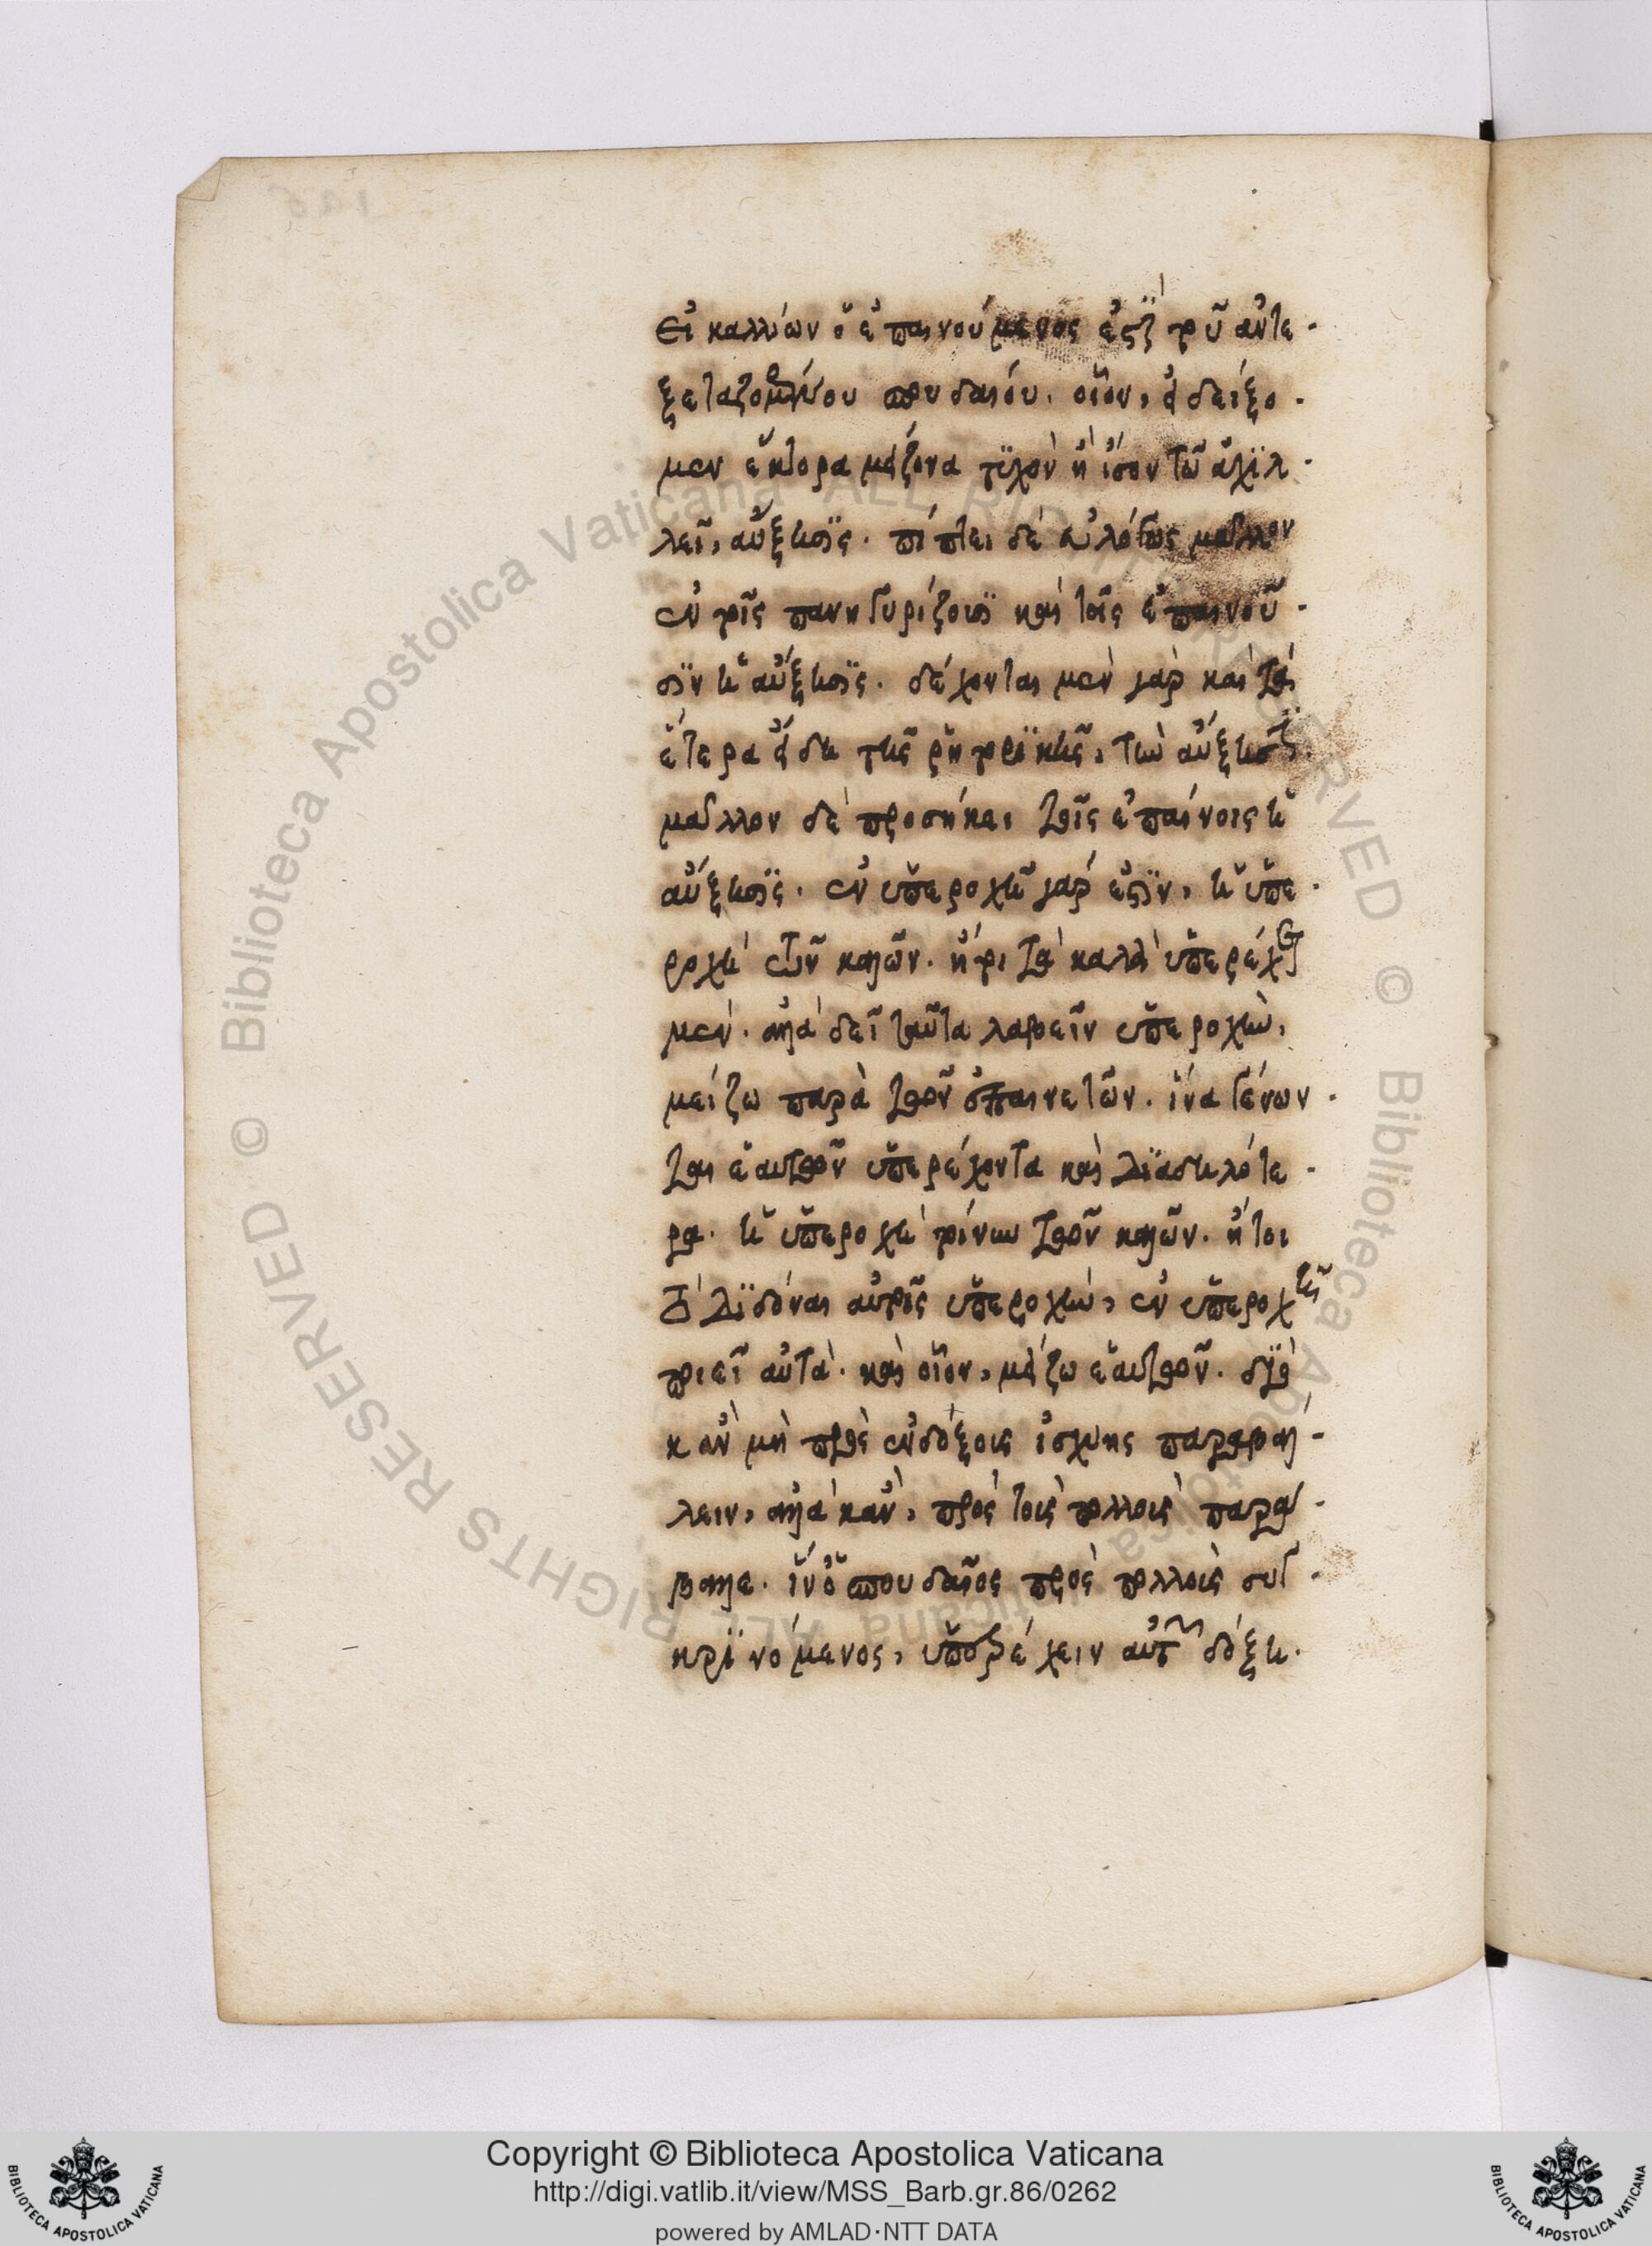 εἰ καλλίων ὁ ἐπαινούμενος ἐστὶ τοῦ ἀντε-
ξεταζομένου σπουδαίου. οἷον, εἰ δείξο-
μεν ἕκτορα μείζονα τυχὸν ἢ ἴσον τῶ ἀχιλ-
λεῖ, αὔξησις. πίπτει δὲ εὐλόγως μᾶλλον
ἐν τοῖς πανηγυρίζουσι καὶ τοῖς ἐπαινοῦ-
σιν ἡ αὔξησις. δέχονται μὲν γὰρ καὶ τὰ
ἕτερα εἴδη τῆς ῥητορικῆς, τὴν αὔξησιν.
μᾶλλον δὲ προσήκει τοῖς ἐπαίνοις ἡ
αὔξησις. ἐν ὑπεροχῆ γάρ ἐστιν, ἡ ὑπε-
ροχὴ τῶν καλῶν. ἤτοι τὰ καλὰ ὑπερέχει
μὲν. ἀλλὰ δεῖ ταῦτα λαβεῖν ὑπεροχὴν,
μείζω παρὰ τῶν ἐπαινετῶν. ἵνα γένων-
ται ἑαυτῶν ὑπερέχοντα καὶ ὑψηλότε-
ρα. ἡ ὑπεροχὴ τοίνυν τῶν καλῶν. ἤτοι
τὸ διδόναι αὐτοῖς ὑπεροχὴν, ἐν ὑπεροχῆ
ποιεῖ αὐτὰ. καὶ οἷον, μείζω ἑαυτῶν. διὸ
κἂν μὴ πρὸς ἐνδόξους ἰσχύης παραβάλ-
λειν, ἀλλὰ κἂν, πρὸς τοὺς πολλοὺς παρά-
βαλλε. ἵν' ὁ σπουδαῖος πρὸς πολλοὺς συγ-
κρινόμενος, ὑπερέχειν αὐτῶν δόξη.
Copyright © Biblioteca Apostolica Vaticana
http://digi.vatlib.it/view/MSS_Barb.gr.86/0262
powered by AMLAD·NTT DATA